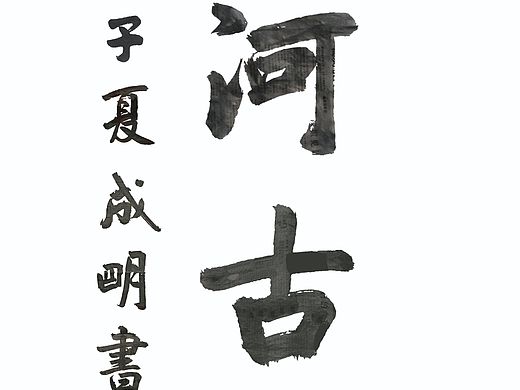 河古
子夏成明書